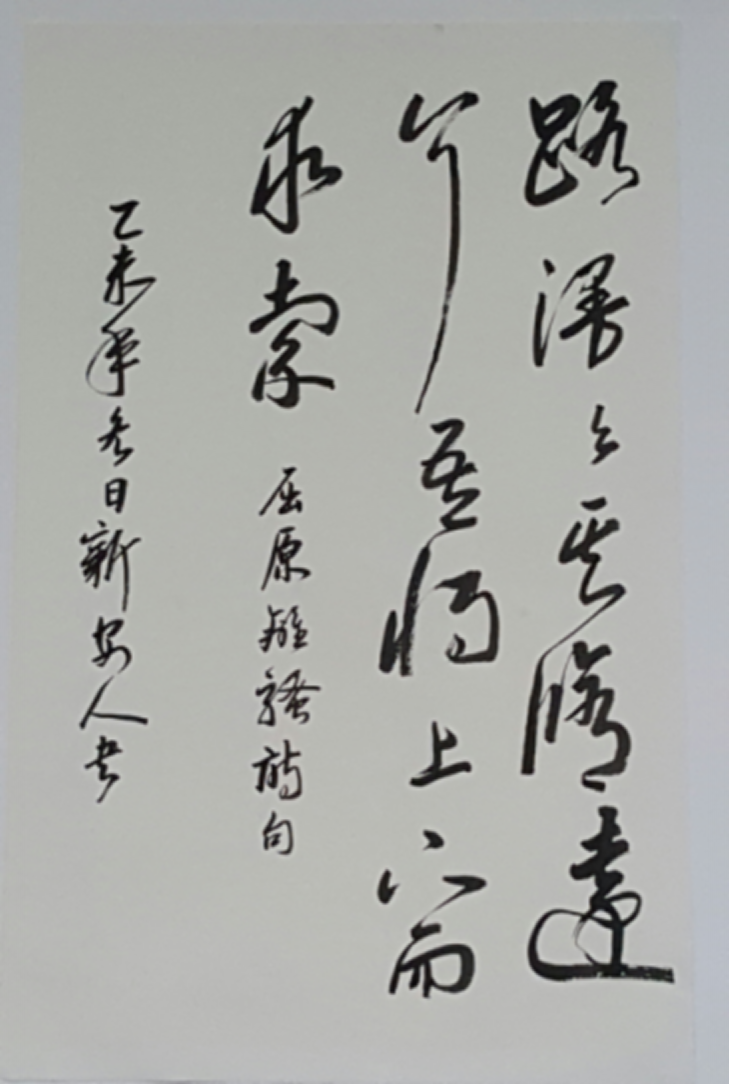 路漫々其脩遠
兮吾將上下而
求索 屈原離騷摘句
乙未年冬日新安人書